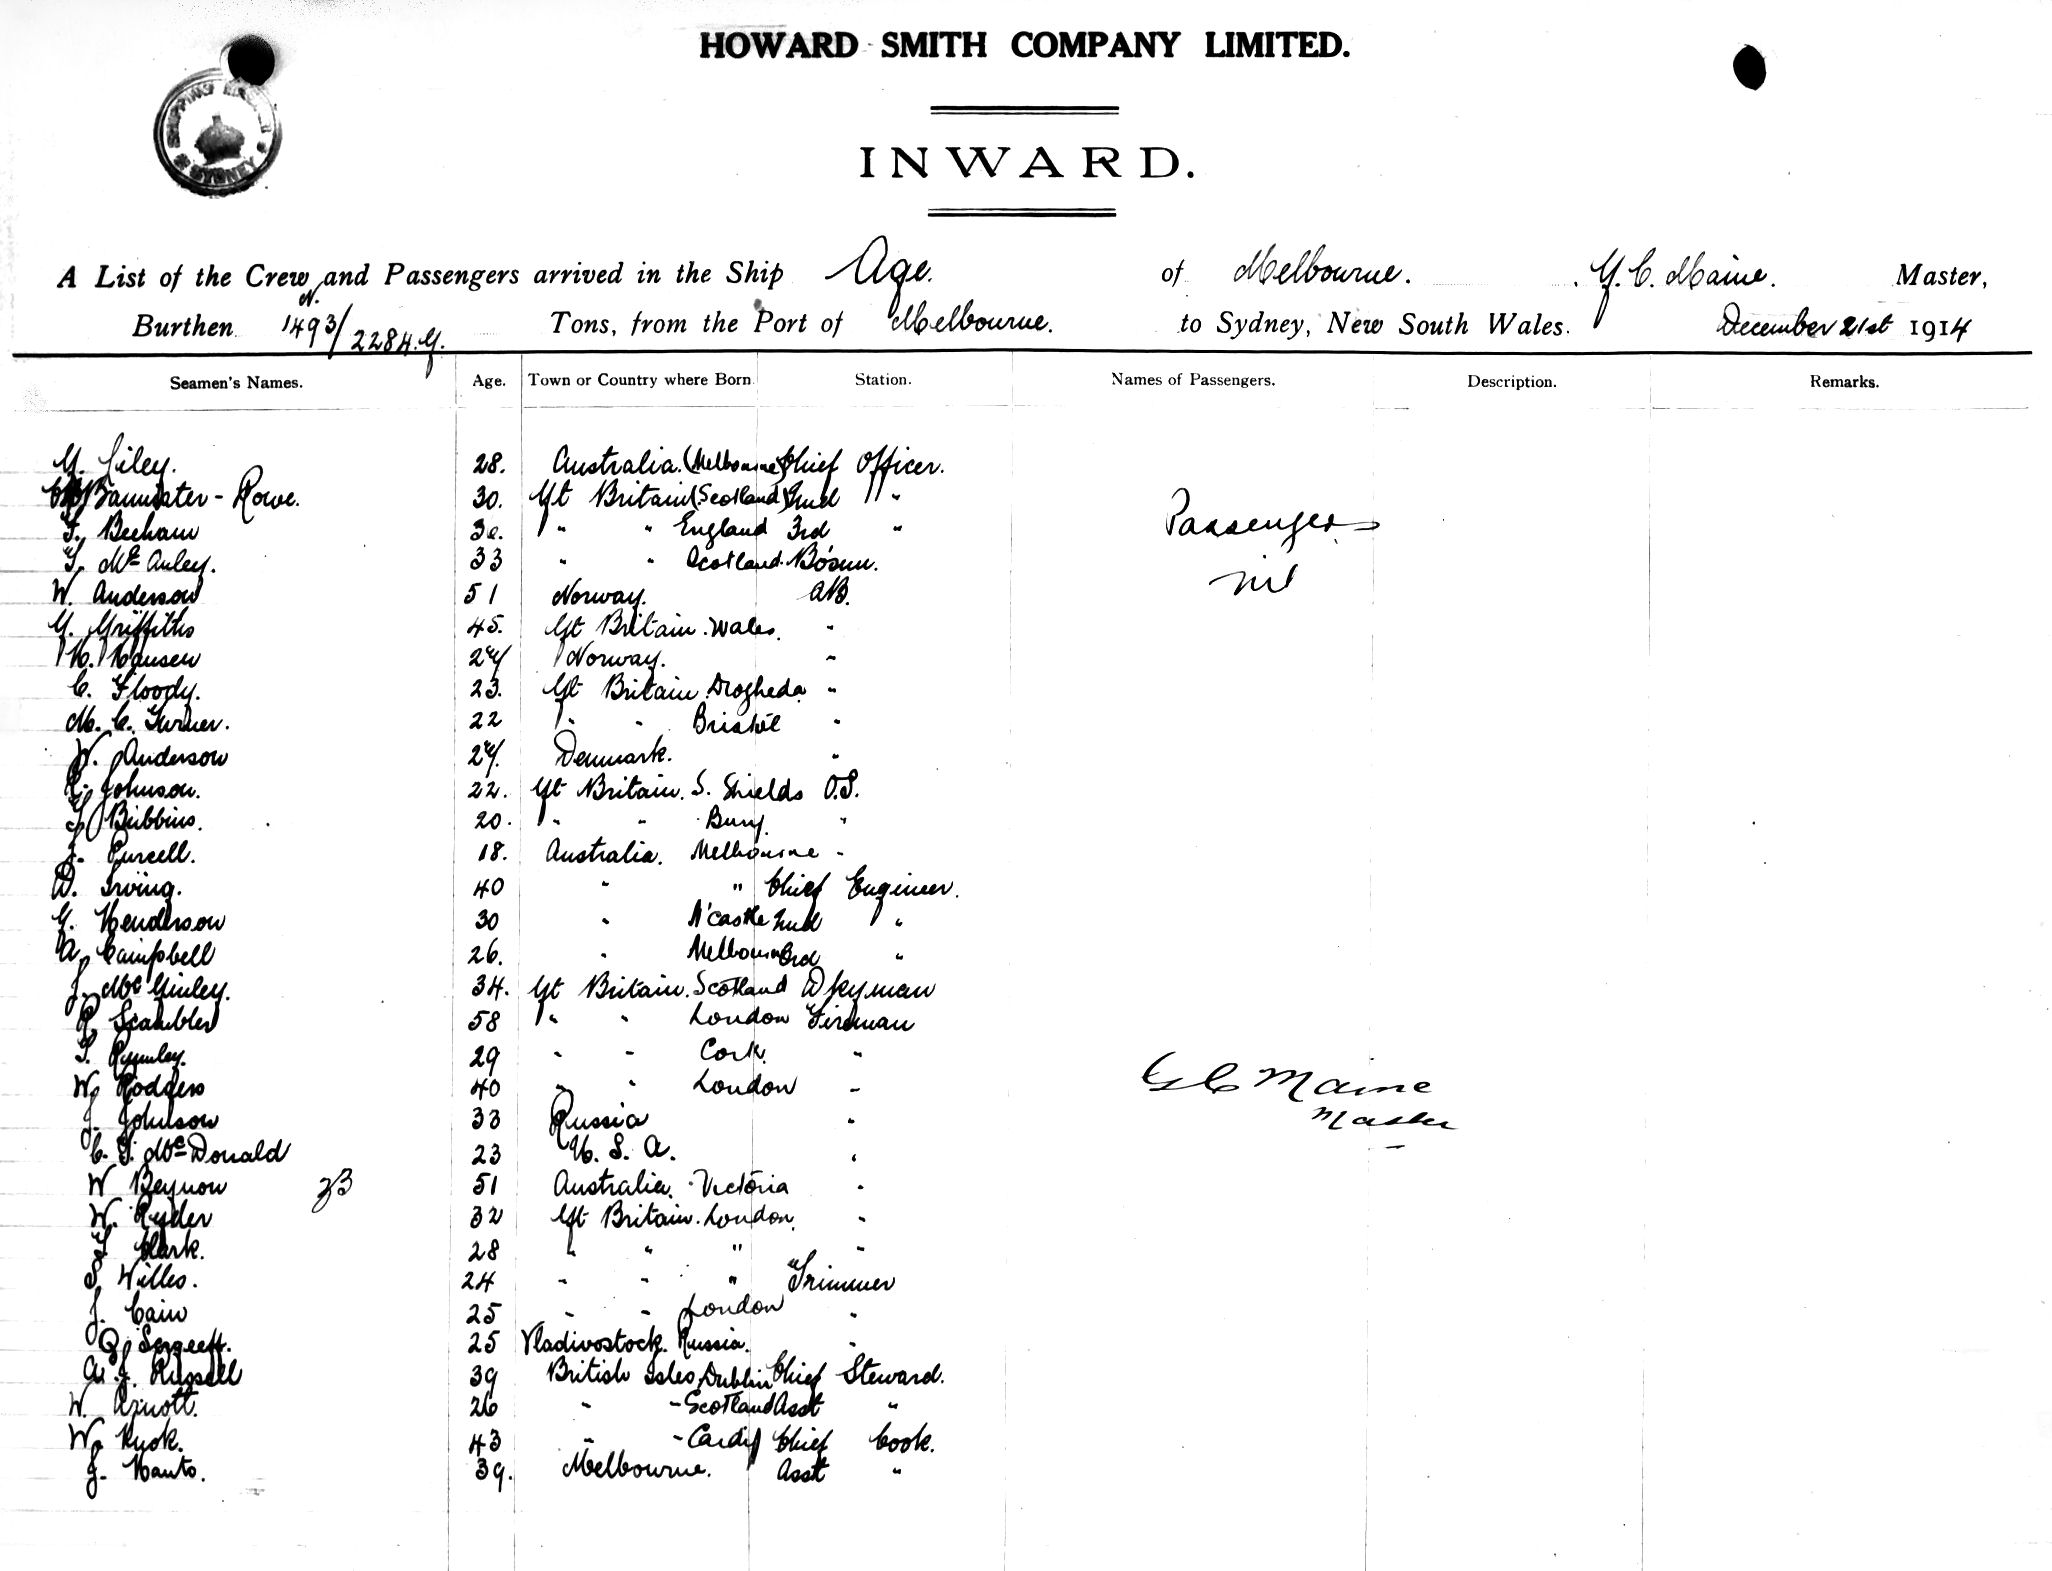 HOWARD SMITH COMPANY LIMITED.
SHIPPING SYDNEY
INWARD.
A List of the Crew and Passengers arrived in the Ship Age. of Melbourne. G. C. Maine. Master,
Burthen 1493 N./2284.G. Tons, from the Port of Melbourne. to Sydney, New South Wales. December 21st 1914
Seamen's Names. Age. Town or Country where Born Station. Names of Passengers. Description. Remarks.
G. Liley. 28. Australia. (Melbourne) Chief Officer.
Bannister-Rowe. 30. Gt Britain (Scotland) 2nd "
F. Beeham 30. " " England 3rd "
Passengers
T. Mc Auley. 33 " " Scotland. Bosun.
nil
W. Anderson 51 Norway. AB.
G. Griffiths 45. Gt Britain. Wales. "
H. Hansen 24 Norway. "
C. Floody. 23. Gt Britain. Drogheda "
M. C. Turner. 22 " " Bristol "
W. Anderson 24. Denmark. "
R. Johnson. 22. Gt Britain. S. Shields O.S.
Bubbins. 20. " " Bury. "
J. Purcell. 18. Australia. Melbourne "
D. Irving. 40 " " Chief Engineer.
G. Henderson 30 " N'castle 2nd "
A. Campbell 26. " Melbourne 3rd "
J. Mc Ginley. 34. Gt Britain. Scotland Dkyman
R. Scambler 58 " " London Fireman
T. 29 " " Cork. "
W. Rodgers 40 " " London "
G C Maine
Master
J. Johnson 33 Russia "
C. T. McDonald 23 U. S. A. "
W Beynon 33 51 Australia. Victoria "
W. Ryder 32 Gt Britain. London. "
T. Clark. 28 " " " "
S. Willes. 24 " " " Trimmer
J. Cain 25 " " London "
25 Vladivostock. Russia. "
A. J. Russell 39 British Isles, Dublin Chief Steward.
W. Arnott. 26 " " Scotland Asst "
W. Kusk. 43 " " Cardiff Chief Cook.
J. Hants. 39. Melbourne. Asst "